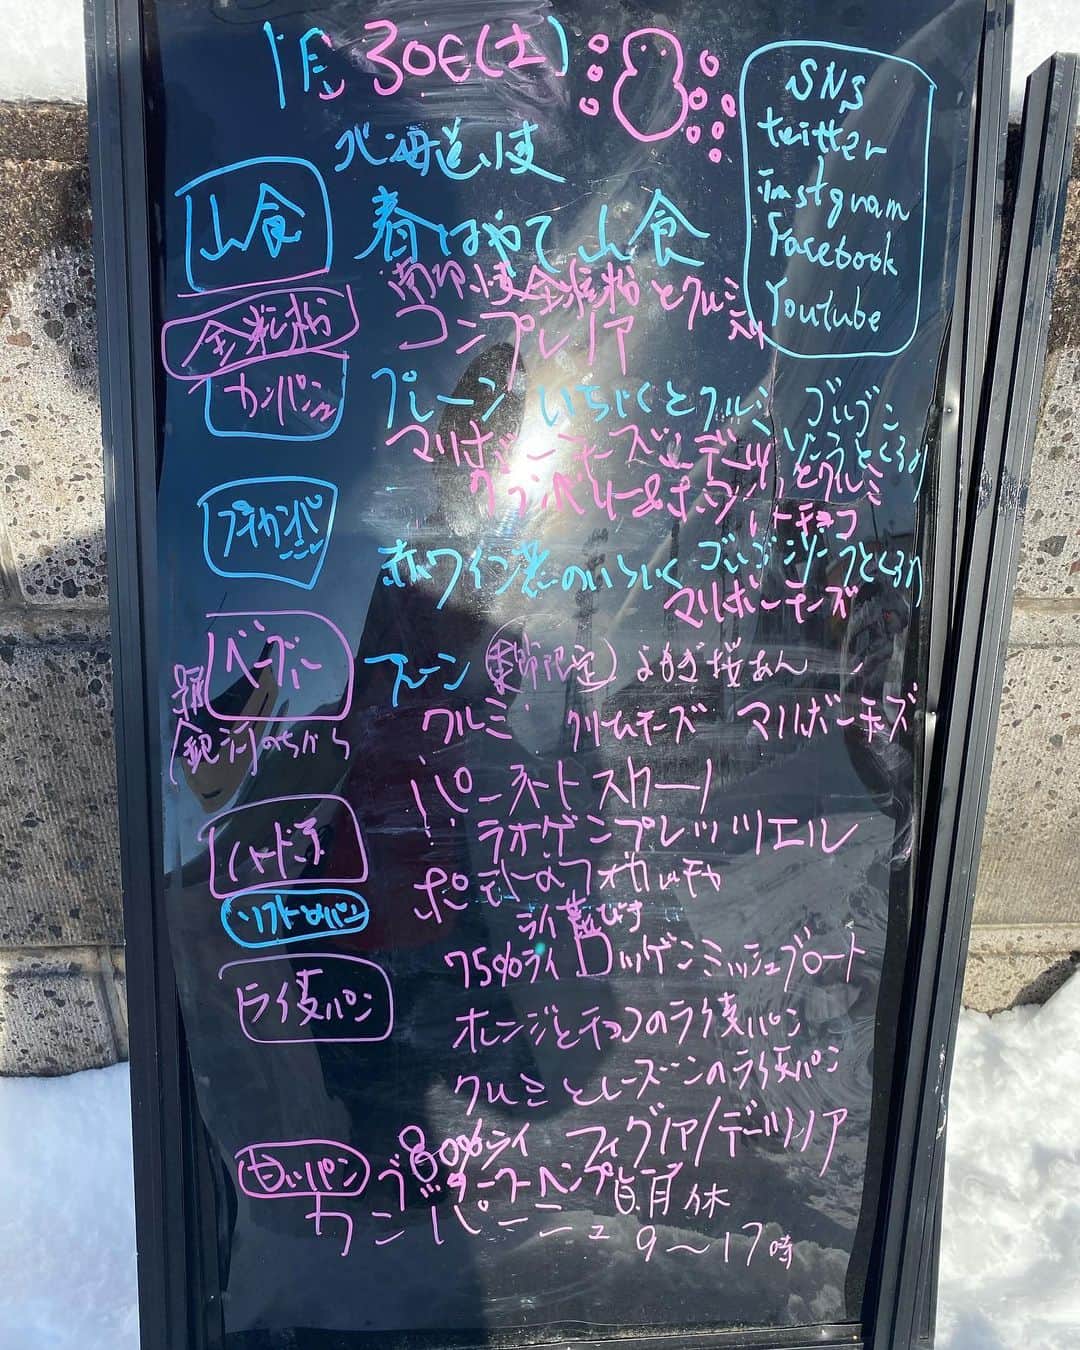 1月30日(土)
SNS
twitter
instgram
Facebook
Youtube
北海道小麦
山食
春はやて 山食
全粒粉
南部小麦全粒粉とクルミ入り
コンプレノア
カンパーニュ
プレーン いちじくとクルミ ゴルゴンゾーラとくるみ
マリボーチーズ デーツとクルミ
クランベリー&ホワイトチョコ
プチカンパーニュ
赤ワイン煮のいちじく ゴルゴンゾーラとくるみ
マリボーチーズ
ベーグル
銀河のちから
プレーン よもぎ桜あん
クルミ クリームチーズ マリボーチーズ
ハード系
パンオトスクール
ラオゲンプレッツェル
ポテトのフォカッチャ
ソフトなパン
ライ麦パン
75%ライ ロッゲンミッシュブロート
オレンジとチョコのライ麦パン
クルミとレーズンのライ麦パン
80%ライ フィグノア/デーツノア
甘いパン
カンパーニュ
日月休
9〜17時